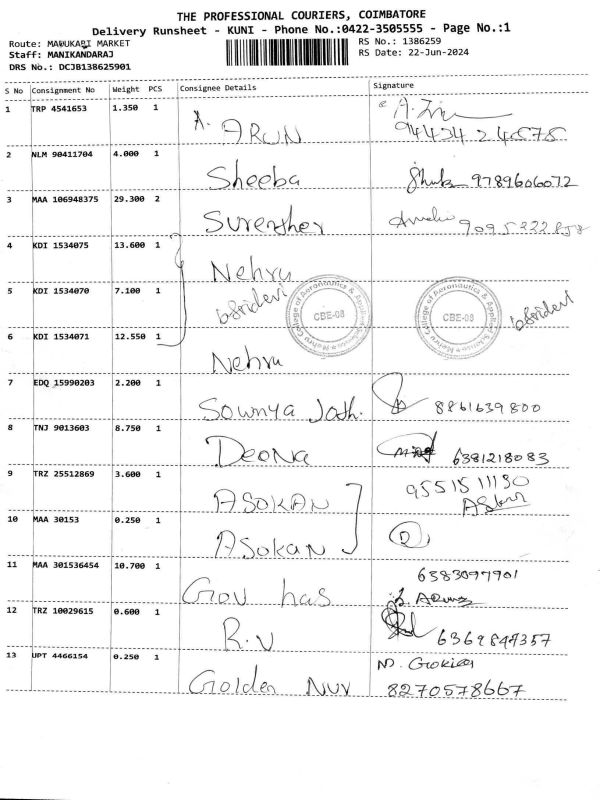 THE PROFESSIONAL COURIERS, COIMBATORE
Delivery Runsheet - KUNI - Phone No.:0422-3505555 - Page No.:1
Route: MADUKARI MARKET RS No.: 1386259
Staff: MANIKANDARAJ RS Date: 22-Jun-2024
DRS No.: DCJB138625901
S No Consignment No Weight PCS Consignee Details Signature
1 TRP 4541653 1.350 1
A. ARUN
2 NLM 90411704 4.000 1
Sheeba 9789606072
3 MAA 106948375 29.300 2
Surenther
4 KDI 1534075 13.600 1
Nehru
5 KDI 1534070 7.100 1
bsridevi Nehru College of Aeronautics & Applied Sciences CBE-08 Nehru College of Aeronautics & Applied Sciences CBE-08 bsridevi
6 KDI 1534071 12.550 1
Nehru
7 EDQ 15990203 2.200 1
Sowmya Josh. 8861639800
8 TNJ 9013603 8.750 1
Deona 6381218083
9 TRZ 25512869 3.600 1
ASOKAN 9551511130
10 MAA 30153 0.250 1
ASOKAN
11 MAA 301536454 10.700 1
Gov has 6383097901
12 TRZ 10029615 0.600 1
R.V 6369847357
13 UPT 4466154 0.250 1
Golden Nuv 8270578667